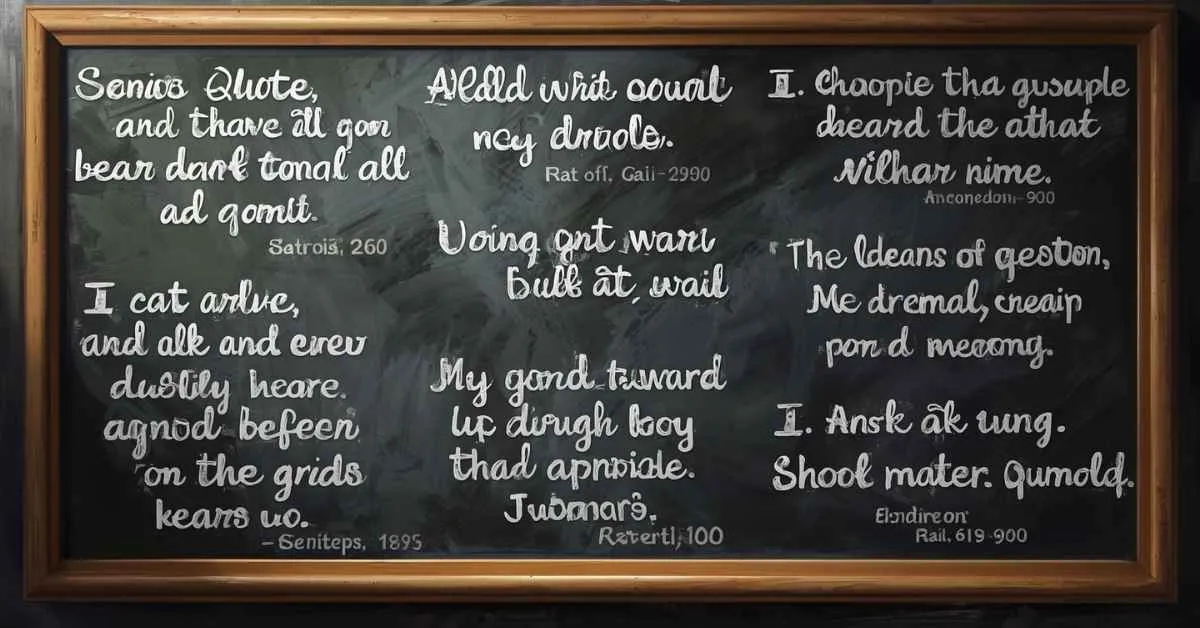 Senios Quote,
and thave all gon
bear dant tonal all
ad gomit.
Satrois, 260
I cat arlve,
and alk and erev
dustily heare.
agnod befeen
on the grids
kears uo.
- Seniteps, 1895
whit coual
ney draole.
Rat off, Gail-2990
Uoing gnt warl
bull at, wail
My gond toward
up dirugh boy
thad
Jubonars.
100
I. Choopie tha gusuple
dheard the athat
Nilhar nime.
Anconedom-900
The ldeans of geston,
Me dremal, creaip
pon d mecong.
I. Ansk ak ung.
Shool mater. Qumold.
Elndireon
Rail. 619-900